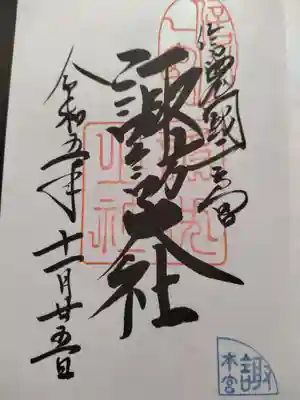 信濃國一之宮
諏訪大社
令和五年十一月廿五日
諏
本宮